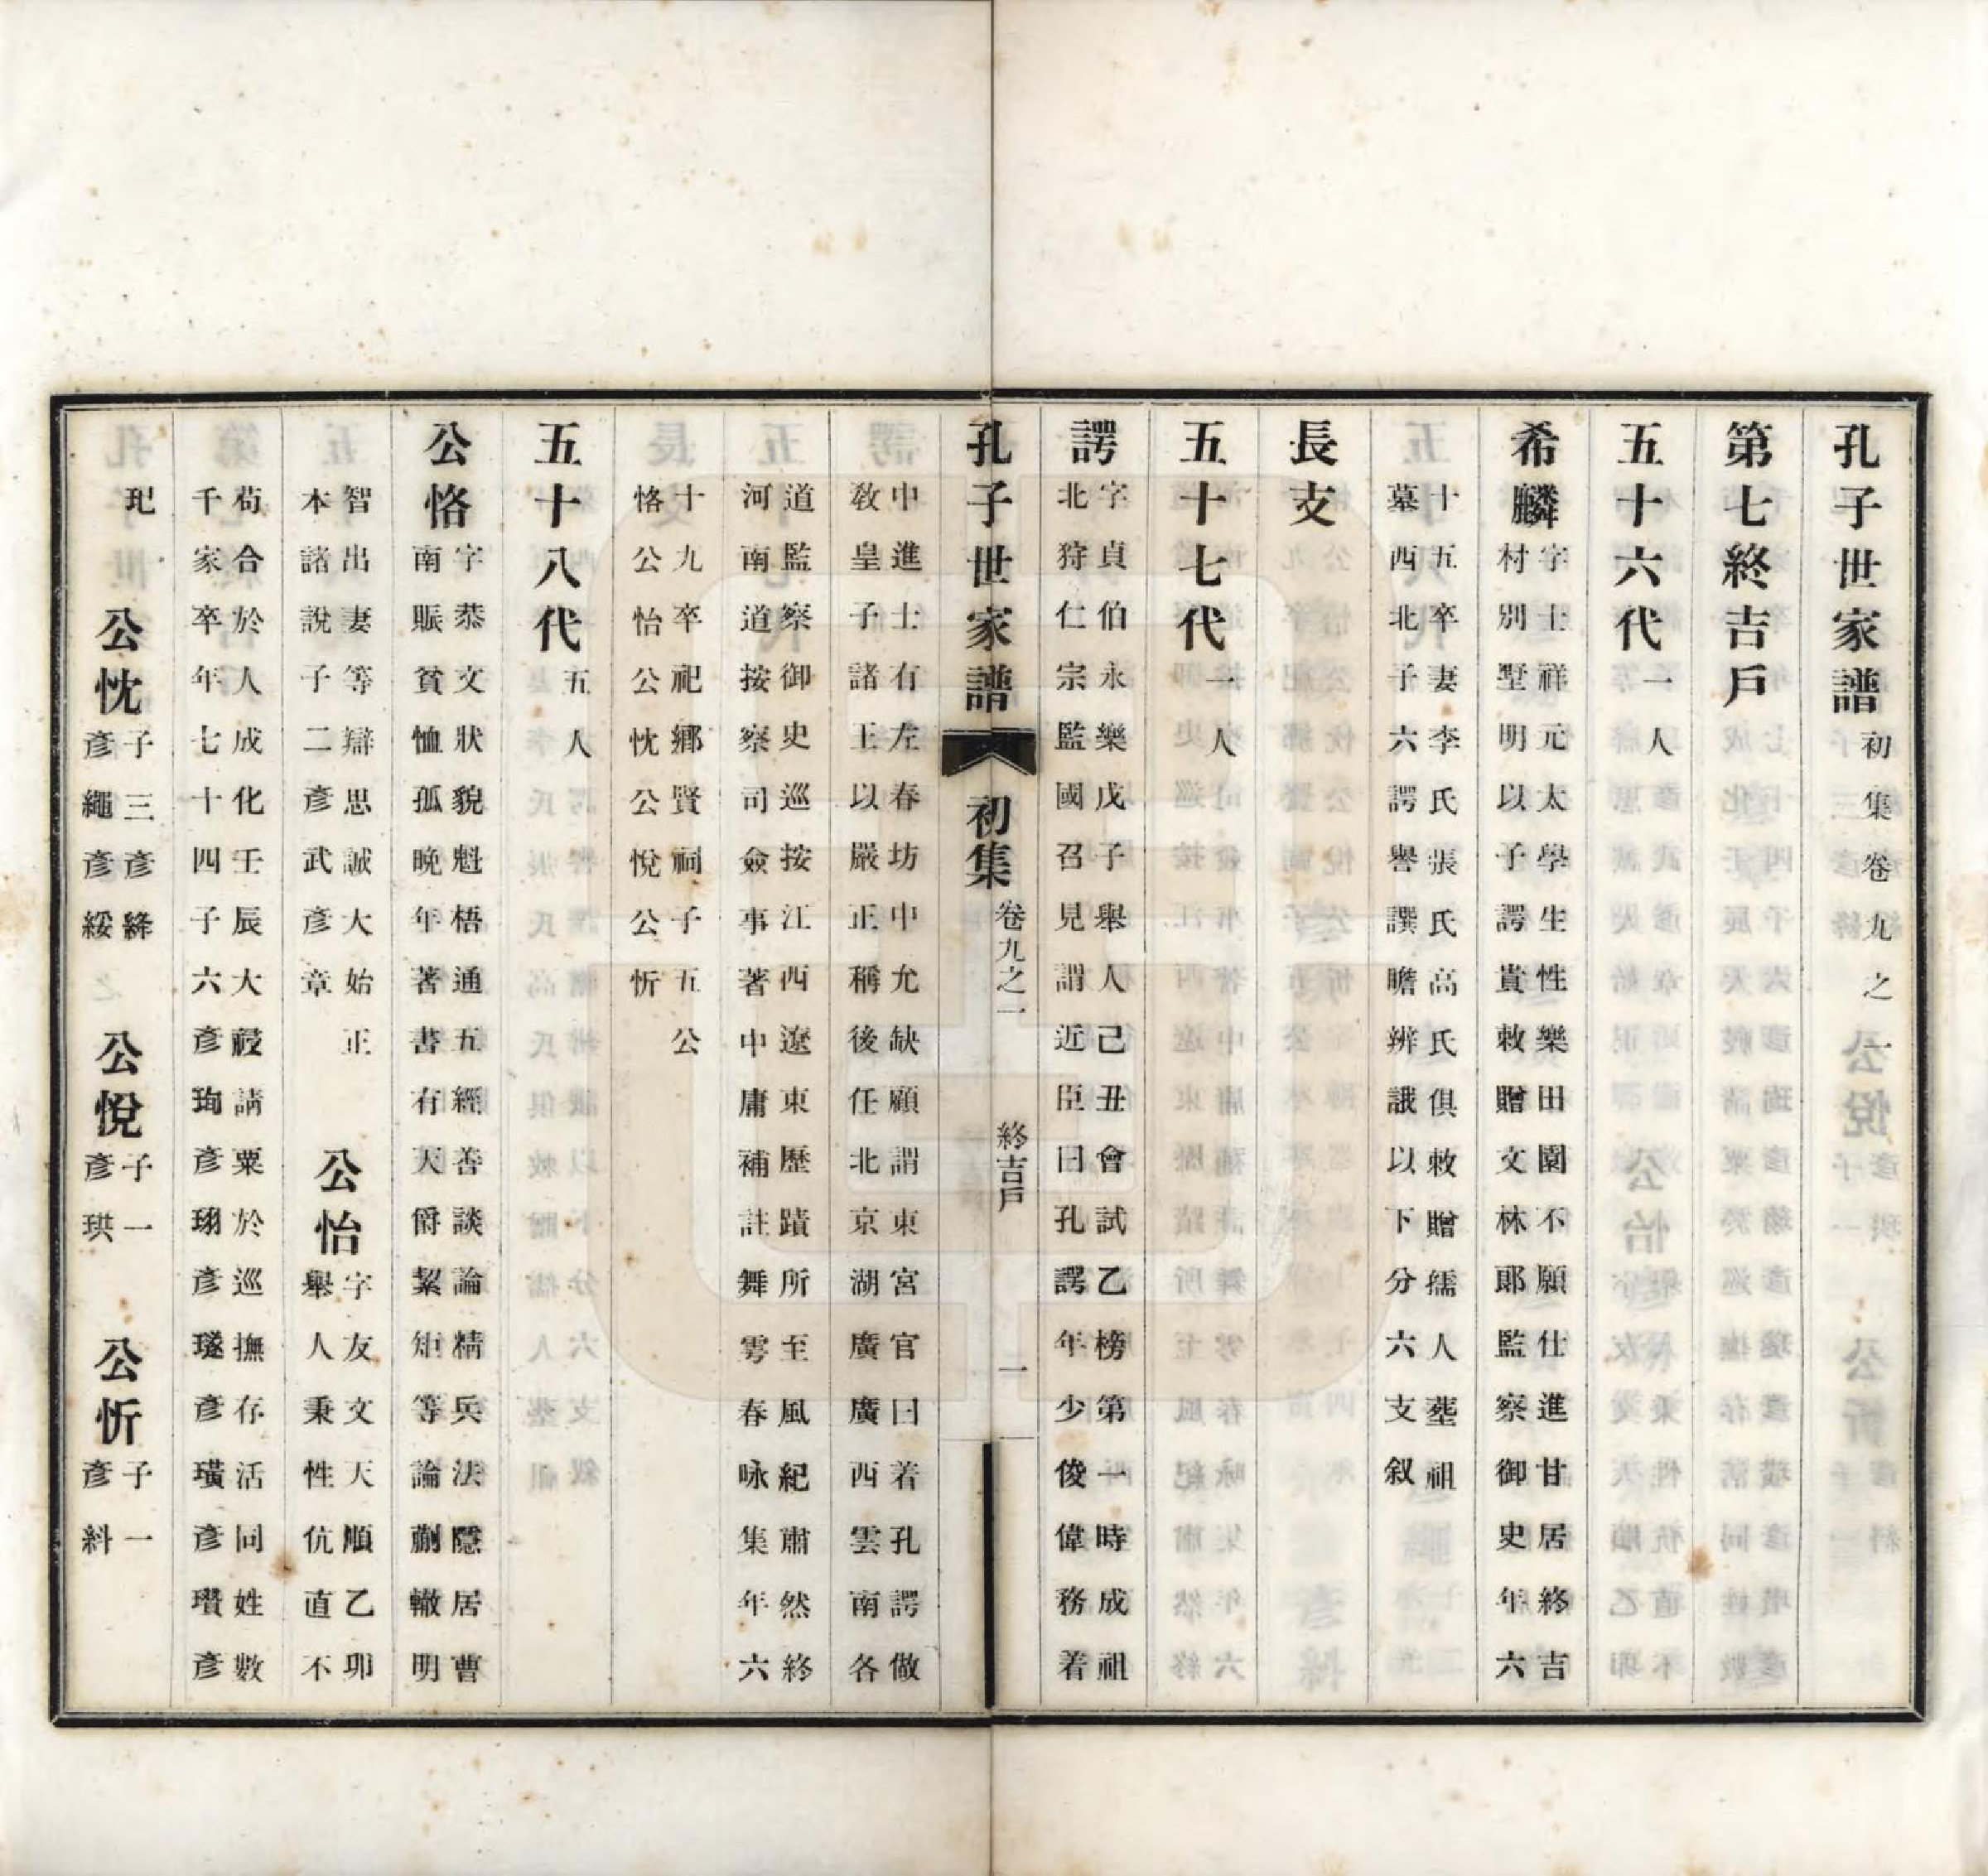 孔子世家譜初集卷九之一
第七終吉戶
五十六代一人
希麟字士祥元太學生性樂田園不願仕進甘居終吉
村別墅明以太子諤貴敕贈文林郎監察御史年六
十五卒妻李氏張氏高氏俱敕贈孺人葬祖
墓西北子六諤譽譔瞻辨諓以下分六支叙
長支
五十七代一人
諤字貞伯永樂戊子舉人己丑會試乙榜第一時成祖
北狩仁宗監國召見謂近臣曰孔諤年少俊偉務着
孔子世家譜 初集 卷九之一 終吉戶 一
中進士有左春坊中允缺顧謂東宮官曰着孔諤做
敎皇子諸王以嚴正稱後任北京湖廣廣西雲南各
道監察御史巡按江西遼東歷蹟所至風紀肅然終
河南道按察司僉事著中庸補註舞雩春咏集年六
十九卒祀鄉賢祠子五公
恪公怡公忱公悅公忻
五十八代五人
公恪字恭文狀貌魁梧通五經善談論精兵法隱居曹
南賑貧恤孤晚年著書有天爵絜矩等論蒯轍明
智出妻等辯思誠大始正
本諸說子二彥武彥章
公怡字友文天順乙卯
舉人秉性伉直不
苟合於人成化壬辰大祲請粟於巡撫存活同姓數
千家卒年七十四子六彥珣彥珝彥璲彥璜彥瓚彥
玘
公忱子三彥絳
彥繩彥綏
公悅子一
彥珙
公忻子一
彥紏